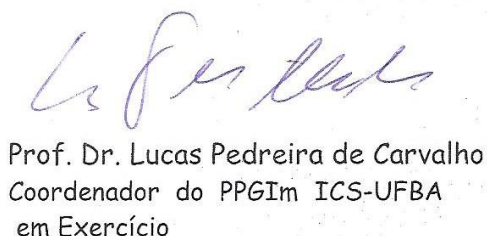 Prof. Dr. Lucas Pedreira de Carvalho
Coordenador do PPGIm ICS-UFBA
em Exercício